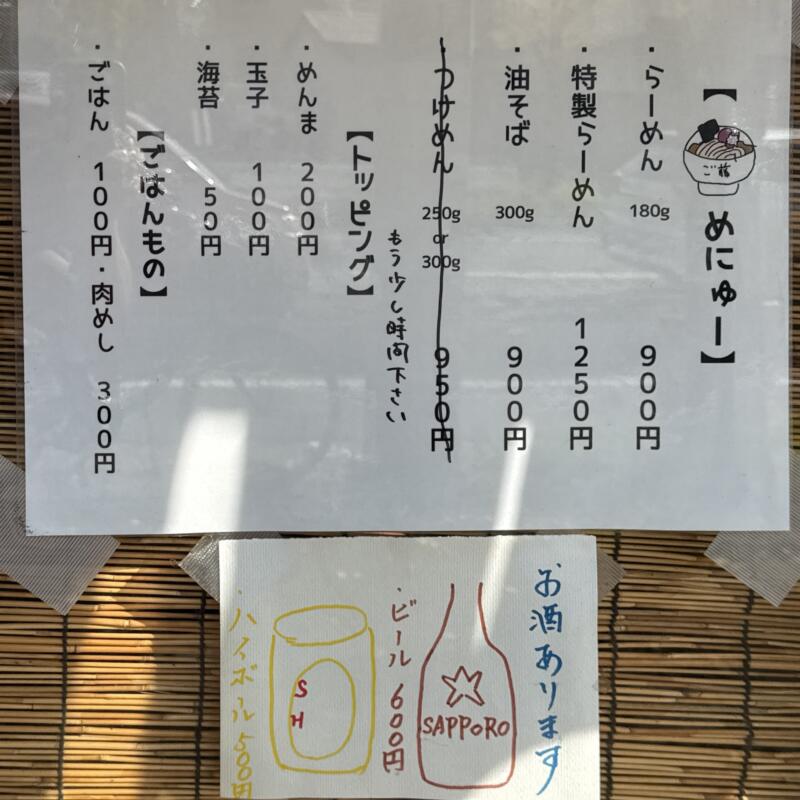 【めにゅー】
・らーめん 180g 900円
・特製らーめん 1250円
・油そば 300g 900円
・つけめん 250g or 300g 950円
もう少し時間下さい
【トッピング】
・めんま 200円
・玉子 100円
・海苔 50円
【ごはんもの】
・ごはん 100円・肉めし 300円
お酒あります
SAPPORO
・ビール 600円
S
H
・ハイボール 500円